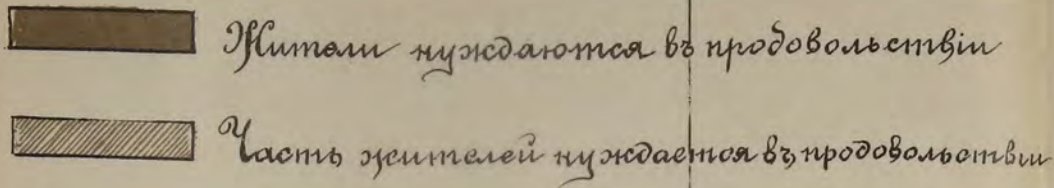 Жители нуждаются въ продовольствіи
Часть жителей нуждается въ продовольствіи